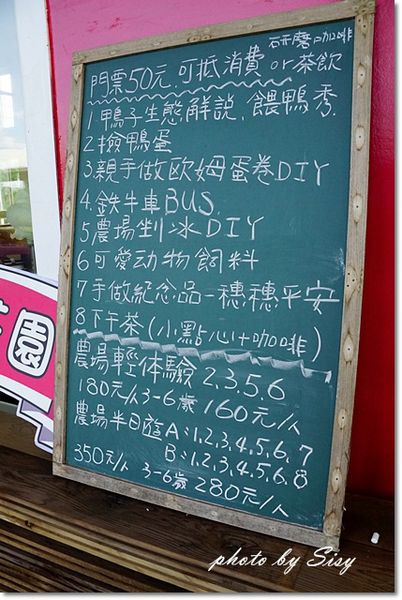 研磨咖啡
門票50元.可抵消費 or 茶飲
1鴨子生態解說、餵鴨秀.
2撿鴨蛋
3.親手做歐姆蛋卷DIY
4.鉄牛車BUS.
5農場剉冰DIY
6可愛动物飼料
7手做紀念品-穗穗平安
8下午茶(小點心+咖啡)
農場輕体驗2,3,5,6
180元/人 3-6歲 160元/人
農場半日遊A:1,2,3,4,5,6,7
B:1,2,3,4,5,6,8
350元/人 3-6歲 280元/人
園
photo by Sisy